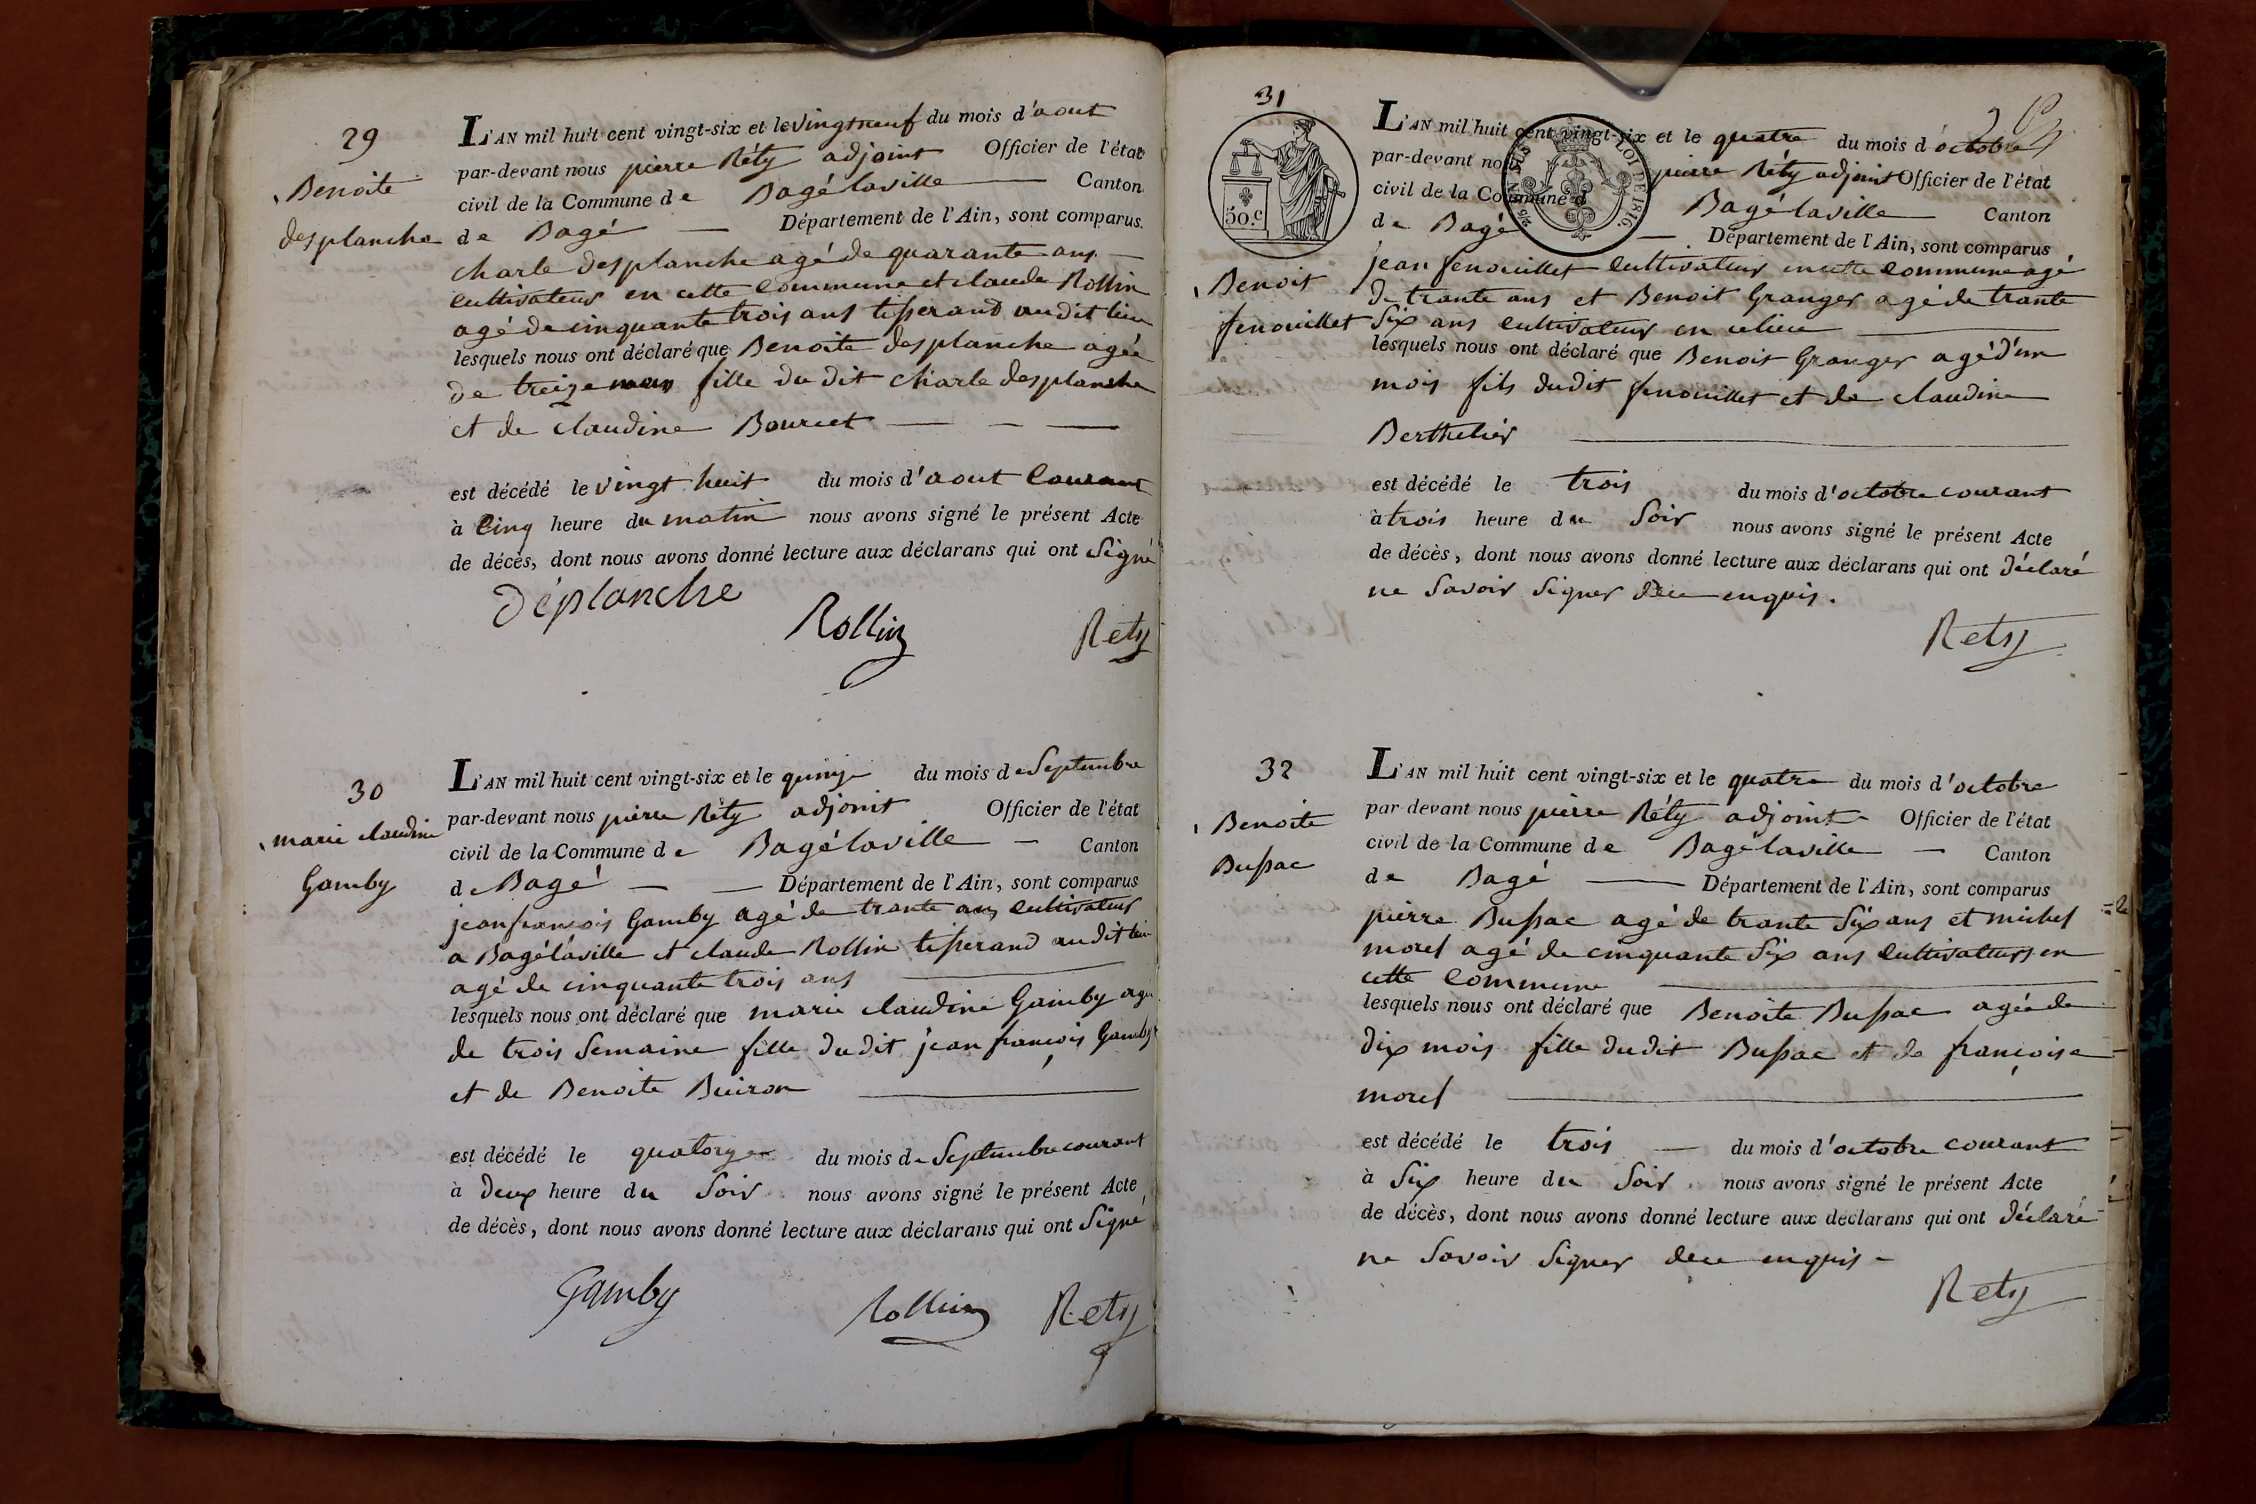 29
Benoite
desplanche
L'AN mil huit cent vingt-six et le vingt neuf du mois d'aout
par-devant nous pierre Réty adjoint Officier de l'état
civil de la Commune de Bagé laville — Canton
de Bagé — Département de l'Ain, sont comparus.
charle desplanche agé de quarante ans —
cultivateur en cette commune et claude Rollin
agé de cinquante trois ans tisserand audit lieu
lesquels nous ont déclaré que Benoite desplanche agée
de treize mois fille du dit charle desplanche
et de claudine Bourcet — — —
est décédé le vingt huit du mois d'aout Courant
à Cinq heure du matin nous avons signé le présent Acte
de décès, dont nous avons donné lecture aux déclarans qui ont Signé
déplanche
Rollin
Rety
30
marie claudine
Gamby
L'AN mil huit cent vingt-six et le quinze du mois de Septembre
par-devant nous pierre Réty adjoint Officier de l'état
civil de la Commune de Bagé laville — Canton
de Bagé — — Département de l'Ain, sont comparus
jean francois Gamby agé de trante ans cultivateur
a Bagé laville et claude Rollin tisserand audit lieu
agé de cinquante trois ans —
lesquels nous ont déclaré que marie claudine Gamby agée
de trois Semaine fille dudit jean françois Gamby
et de Benoite Buiron —
est décédé le quatorze du mois de Septembre courant
à deux heure du Soir nous avons signé le présent Acte
de décès, dont nous avons donné lecture aux déclarans qui ont Signé
Gamby
Rollin
Rety
31
50.c
LOI DE 1816.
Benoit
fenouillet
L'AN mil huit cent vingt-six et le quatre du mois d'octobre
par-devant nous pierre Réty adjoint Officier de l'état
civil de la Commune d Bagé laville — Canton
de Bagé — Département de l'Ain, sont comparus
jean fenouillet cultivateur en cette commune agé
de trante ans et Benoit Granger agé de trante
Six ans cultivateur en ce lieu —
lesquels nous ont déclaré que Benoit Granger agé d'un
mois fils dudit fenouillet et de claudine
Berthelier —
est décédé le trois du mois d'octobre courant
à trois heure du Soir nous avons signé le présent Acte
de décès, dont nous avons donné lecture aux déclarans qui ont déclaré
ne Savoir Signer de ce enquis.
Rety
32
Benoite
Bussac
L'AN mil huit cent vingt-six et le quatre du mois d'octobre
par-devant nous pierre Réty adjoint Officier de l'état
civil de la Commune de Bagé laville — Canton
de Bagé — Département de l'Ain, sont comparus
pierre Bussac agé de trante Six ans et michel
morel agé de cinquante Six ans cultivateurs en
cette Commune —
lesquels nous ont déclaré que Benoite Bussac agée de
dix mois fille dudit Bussac et de françoise
morel —
est décédé le trois — du mois d'octobre courant
à Six heure du Soir nous avons signé le présent Acte
de décès, dont nous avons donné lecture aux déclarans qui ont déclaré
ne Savoir Signer de ce enquis —
Rety